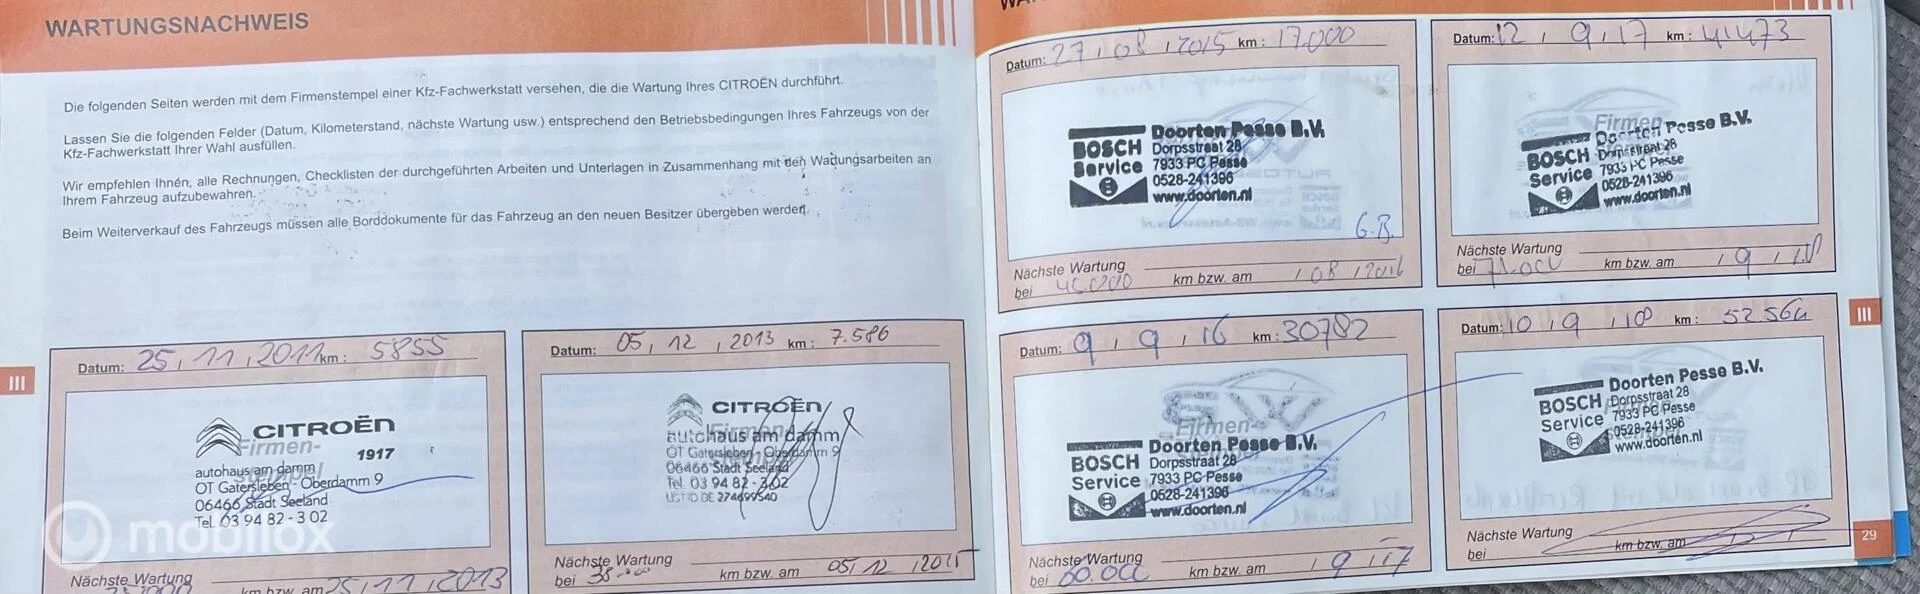 WARTUNGSNACHWEIS
Die folgenden Seiten werden mit dem Firmenstempel einer Kfz-Fachwerkstatt versehen, die die Wartung Ihres CITROËN durchführt.
Lassen Sie die folgenden Felder (Datum, Kilometerstand, nächste Wartung usw.) entsprechend den Betriebsbedingungen Ihres Fahrzeugs von der
Kfz-Fachwerkstatt Ihrer Wahl ausfüllen.
Wir empfehlen Ihnen, alle Rechnungen, Checklisten der durchgeführten Arbeiten und Unterlagen in Zusammenhang mit den Wartungsarbeiten an
Ihrem Fahrzeug aufzubewahren.
Beim Weiterverkauf des Fahrzeugs müssen alle Borddokumente für das Fahrzeug an den neuen Besitzer übergeben werden.
III
Datum: 25, 11, 2011 km: 5855
CITROËN
Firmen-
1917
autohaus am damm
OT Gatersleben - Oberdamm 9
06466 Stadt Seeland
Tel. 03 94 82 - 3 02
Nächste Wartung
km bzw. am 25, 11, 2013
Datum: 05, 12, 2013 km: 7.586
CITROËN
Firmen-
autohaus am damm
OT Gatersleben - Oberdamm 9
06466 Stadt Seeland
Tel. 03 94 82 - 3 02
UST ID DE 274699540
Nächste Wartung
bei km bzw. am 05, 12, 2015
mobilox
Datum: 27, 08, 2015 km: 17.000
BOSCH
Service
Doorten Pesse B.V.
Dorpsstraat 28
7933 PC Pesse
0528-241396
www.doorten.nl
G.B.
Nächste Wartung
bei 45000 km bzw. am , 08, 2016
Datum: 12, 9, 17 km: 41473
Firmen-
BOSCH
Service
Doorten Pesse B.V.
Dorpsstraat 28
7933 PC Pesse
0528-241396
www.doorten.nl
Nächste Wartung
bei 71.000 km bzw. am , 9, 18
Datum: 9, 9, 16 km: 30782
Firmen-
BOSCH
Service
Doorten Pesse B.V.
Dorpsstraat 28
7933 PC Pesse
0528-241396
www.doorten.nl
Nächste Wartung
bei 60.000 km bzw. am , 9, 17
Datum: 10, 9, 18 km: 52564
BOSCH
Service
Doorten Pesse B.V.
Dorpsstraat 28
7933 PC Pesse
0528-241396
www.doorten.nl
Nächste Wartung
bei km bzw. am
III
29